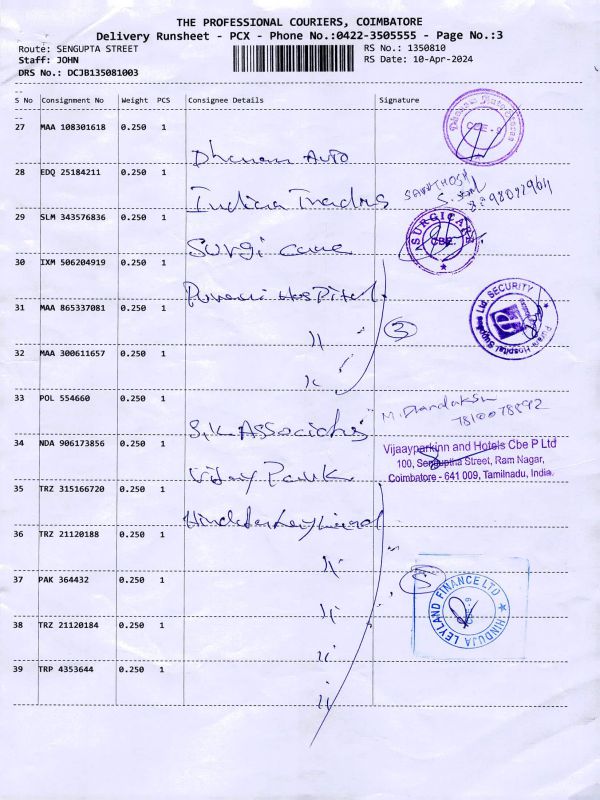 THE PROFESSIONAL COURIERS, COIMBATORE
Delivery Runsheet - PCX - Phone No.:0422-3505555 - Page No.:3
Route: SENGUPTA STREET RS No.: 1350810
Staff: JOHN RS Date: 10-Apr-2024
DRS No.: DCJB135081003
S No Consignment No Weight PCS Consignee Details Signature
27 MAA 108301618 0.250 1
CBE - 9
Dhanam Auto
28 EDQ 25184211 0.250 1
Indian Traders SANTHOSH
29 SLM 343576836 0.250 1
Surgi care SURGICARE CBE.
30 IXM 506204919 0.250 1
Purani Hospital
31 MAA 865337081 0.250 1
" 3 Purani Hospital Supplies Ltd. SECURITY
32 MAA 300611657 0.250 1
"
33 POL 554660 0.250 1
S.K Associates 7810078892
34 NDA 906173856 0.250 1
Vijay Park Vijaayparkinn and Hotels Cbe P Ltd
100, Senguptha Street, Ram Nagar,
Coimbatore - 641 009, Tamilnadu, India.
35 TRZ 315166720 0.250 1
Hinduja Leyland
36 TRZ 21120188 0.250 1
"
37 PAK 364432 0.250 1
" 5 HINDUJA LEYLAND FINANCE LTD
38 TRZ 21120184 0.250 1
"
39 TRP 4353644 0.250 1
"